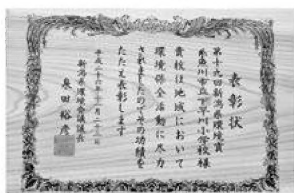 表彰状
第十九回新潟県環境賞
糸魚川市立下早川小学校様
貴校は地域において
環境保全活動に尽力
されましたのでその功績を
たたえ表彰します
平成二十年十一月二十二日
新潟県環境会議議長
泉田裕彦